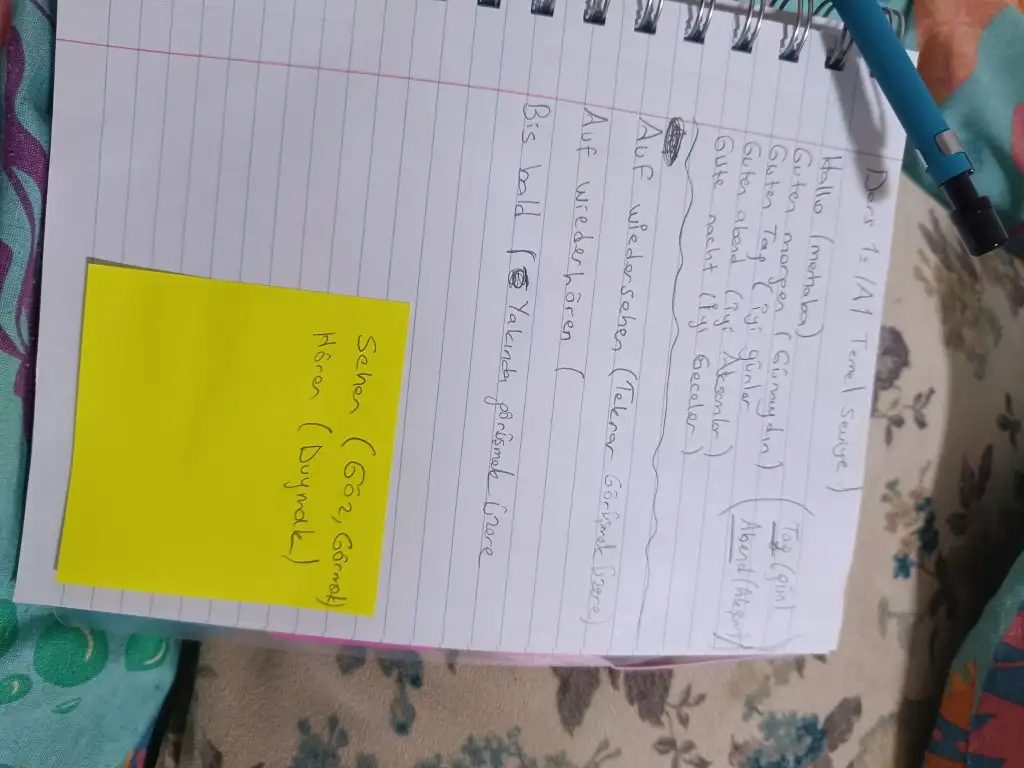 Ders 1: (A1 Temel Seviye)
Hallo (merhaba)
Guten morgen (Günaydın)
Guten Tag (iyi günler (Tag (gün)
Guten abend (iyi Akşamlar) (Abend (Akşam))
Gute nacht (iyi Geceler)
Auf wiedersehen (Tekrar Görüşmek üzere)
Auf wiederhören (
Bis bald ( Yakında görüşmek üzere
Sehen (Göz, Görmek)
Hören (Duymak)